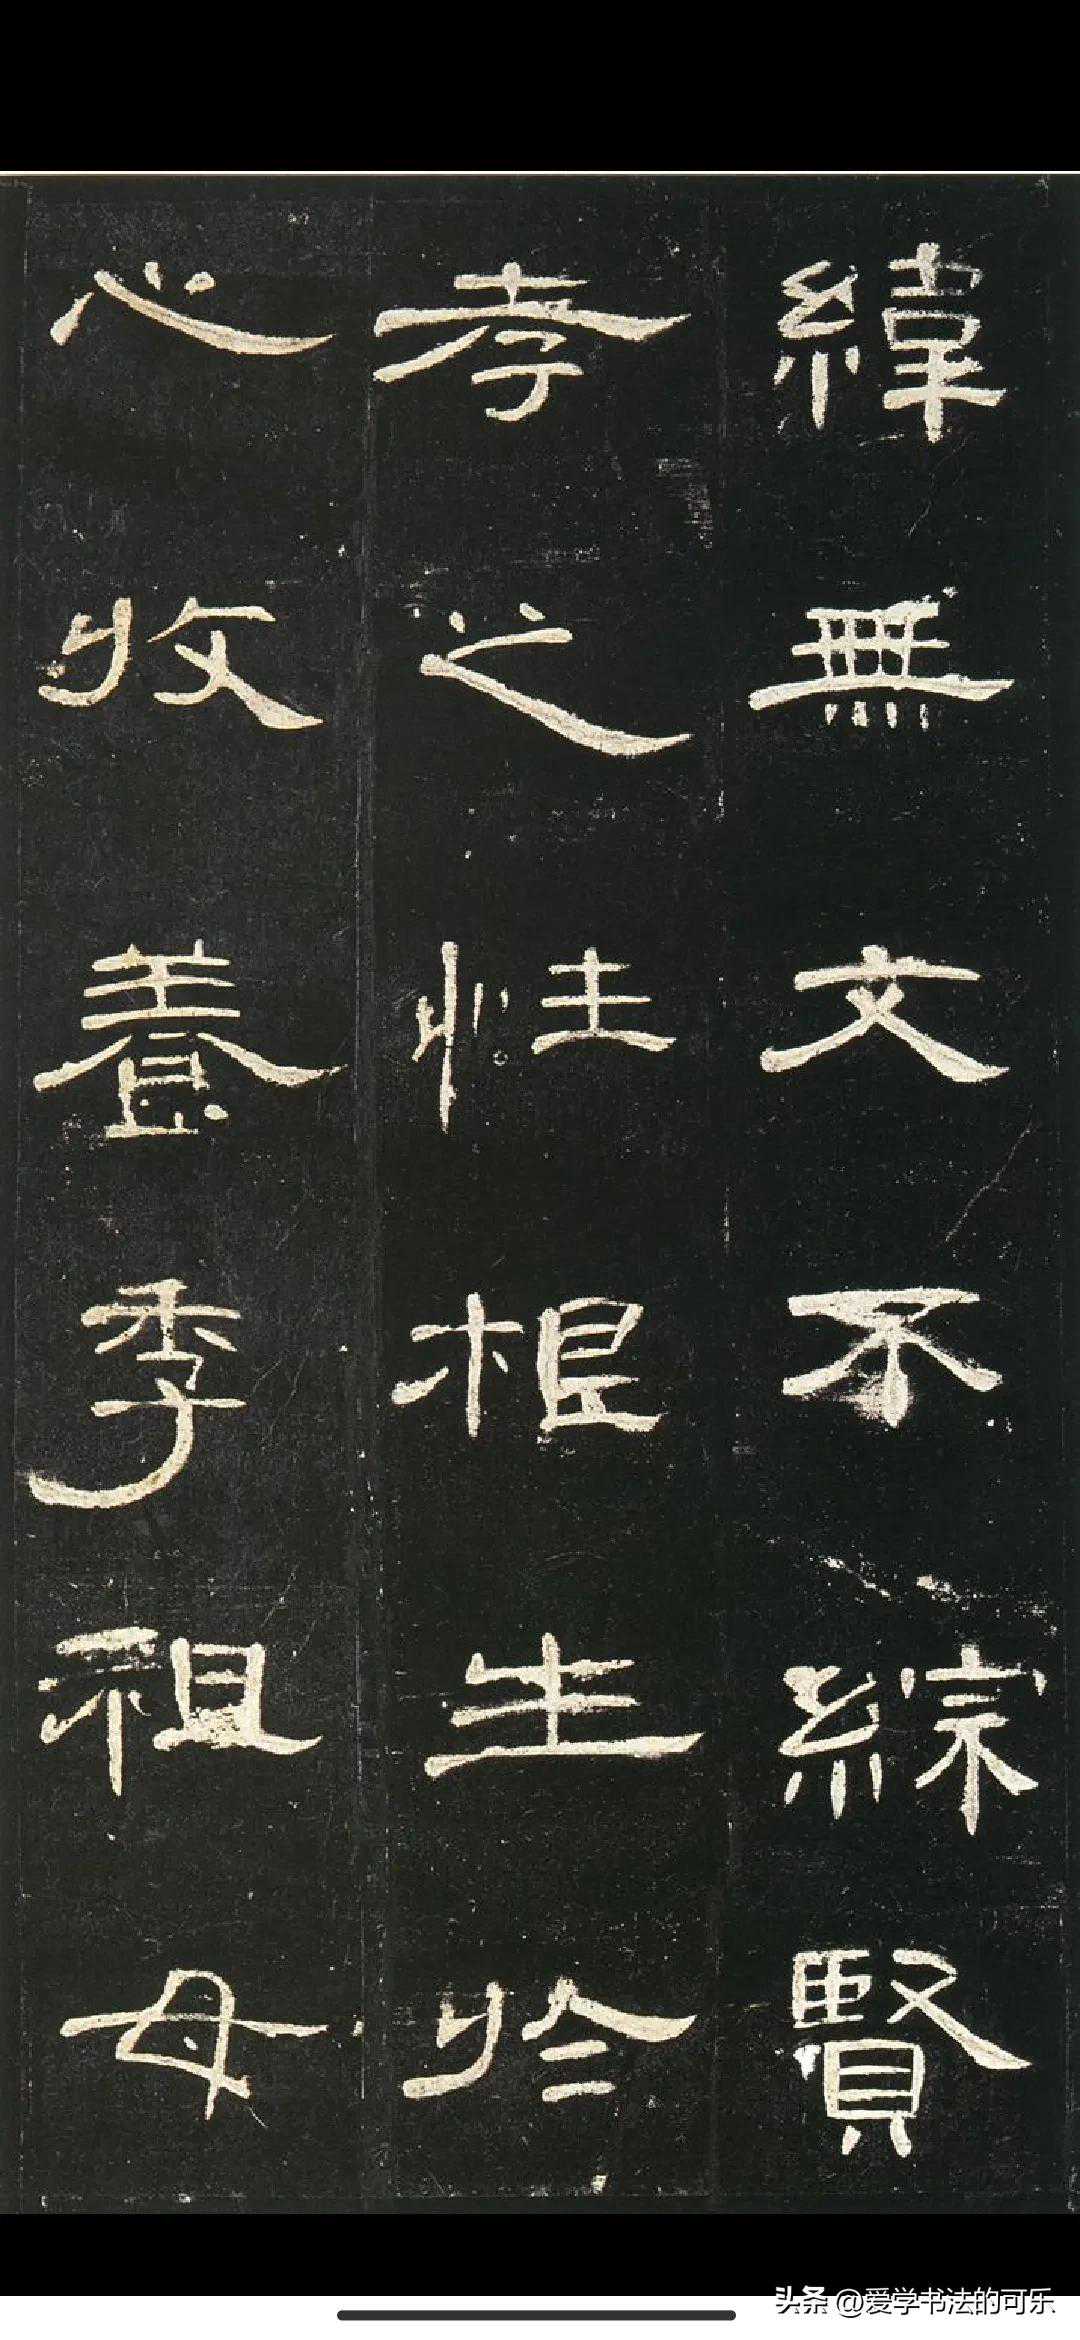 緯無文不綜賢
孝之性根生於
心收養季祖母
头条 @爱学书法的可乐